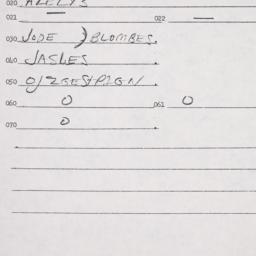 020
021 — 022 —
030 JODE ) BLOMBES.
040 JASLES
050
060 0 061 0
070 0